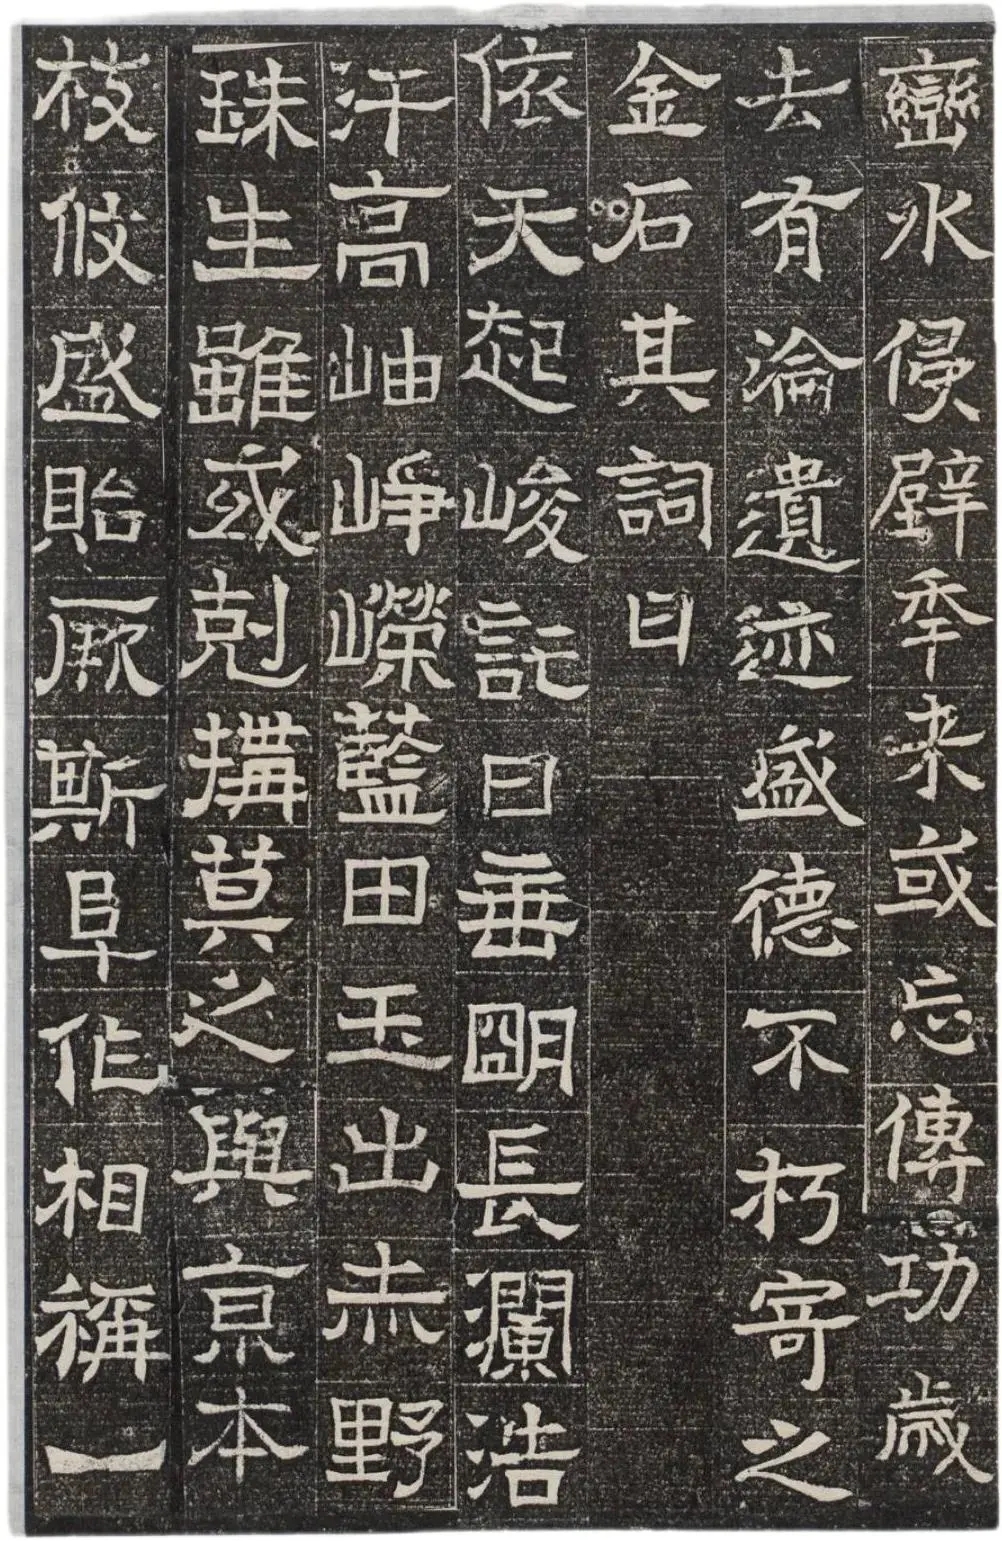 巒水侵壁年来或忘傳功歲
去有淪遺迹盛德不朽寄之
金石其詞曰
依天起峻託日垂明長瀾浩
汗高岫崢嶸藍田玉出赤野
珠生雖或剋搆莫之與京本
枝攸盛貽厥斯阜作相稱一